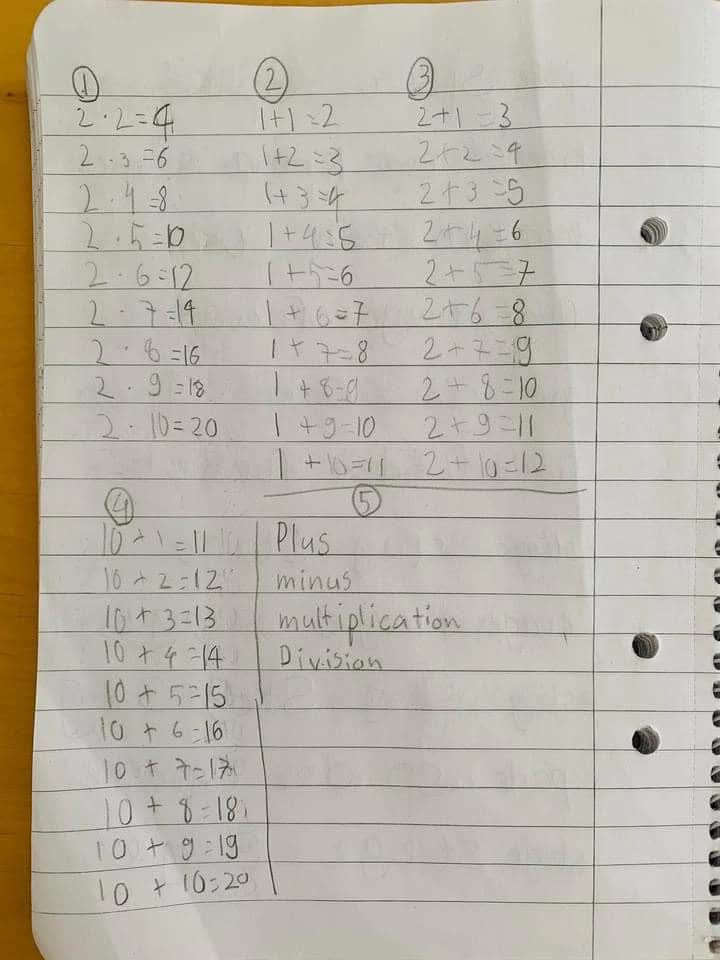 ①
2 · 2=4
2 · 3=6
2 · 4=8
2 · 5=10
2 · 6=12
2 · 7=14
2 · 8=16
2 · 9=18
2 · 10=20
②
1+1=2
1+2=3
1+3=4
1+4=5
1+5=6
1+6=7
1+7=8
1+8=9
1+9=10
1+10=11
③
2+1=3
2+2=4
2+3=5
2+4=6
2+5=7
2+6=8
2+7=9
2+8=10
2+9=11
2+10=12
④
10+1=11
10+2=12
10+3=13
10+4=14
10+5=15
10+6=16
10+7=17
10+8=18
10+9=19
10+10=20
⑤
Plus
minus
multiplication
Division